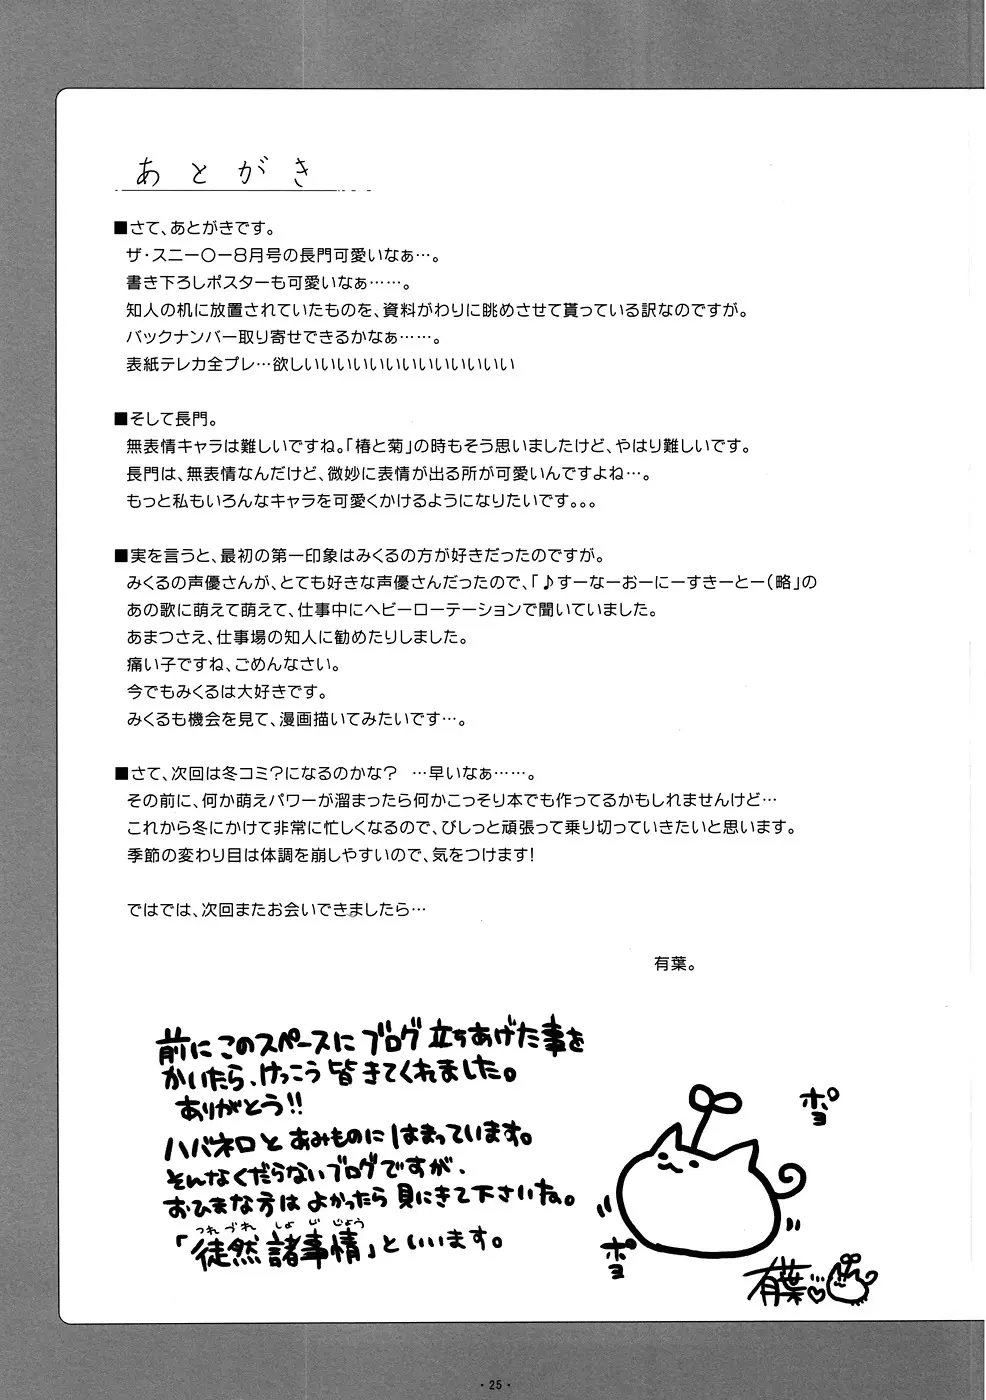 あとがき
■さて、あとがきです。
ザ・スニー〇ー8月号の長門可愛いなぁ…。
書き下ろしポスターも可愛いなぁ……。
知人の机に放置されていたものを、資料がわりに眺めさせて貰っている訳なのですが。
バックナンバー取り寄せできるかなぁ……。
表紙テレカ全プレ…欲しいいいいいいいいいいいいいい
■そして長門。
無表情キャラは難しいですね。「椿と菊」の時もそう思いましたけど、やはり難しいです。
長門は、無表情なんだけど、微妙に表情が出る所が可愛いんですよね…。
もっと私もいろんなキャラを可愛くかけるようになりたいです。。。
■実を言うと、最初の第一印象はみくるの方が好きだったのですが。
みくるの声優さんが、とても好きな声優さんだったので、「♪すーなーおーにーすきーとー(略」の
あの歌に萌えて萌えて、仕事中にヘビーローテーションで聞いていました。
あまつさえ、仕事場の知人に勧めたりしました。
痛い子ですね、ごめんなさい。
今でもみくるは大好きです。
みくるも機会を見て、漫画描いてみたいです…。
■さて、次回は冬コミ？になるのかな？ …早いなぁ……。
その前に、何か萌えパワーが溜まったら何かこっそり本でも作ってるかもしれませんけど…
これから冬にかけて非常に忙しくなるので、びしっと頑張って乗り切っていきたいと思います。
季節の変わり目は体調を崩しやすいので、気をつけます！
ではでは、次回またお会いできましたら…
有葉。
前にこのスペースにブログ立ちあげた事を
かいたら、けっこう皆きてくれました。
ありがとう!!
ハバネロとあみものにはまっています。
そんなくだらないブログですが、
おひまな方はよかったら見にきて下さいね。
つれづれしょじじょう
「徒然諸事情」といいます。
ポヨ
ポヨ
有葉
・25・